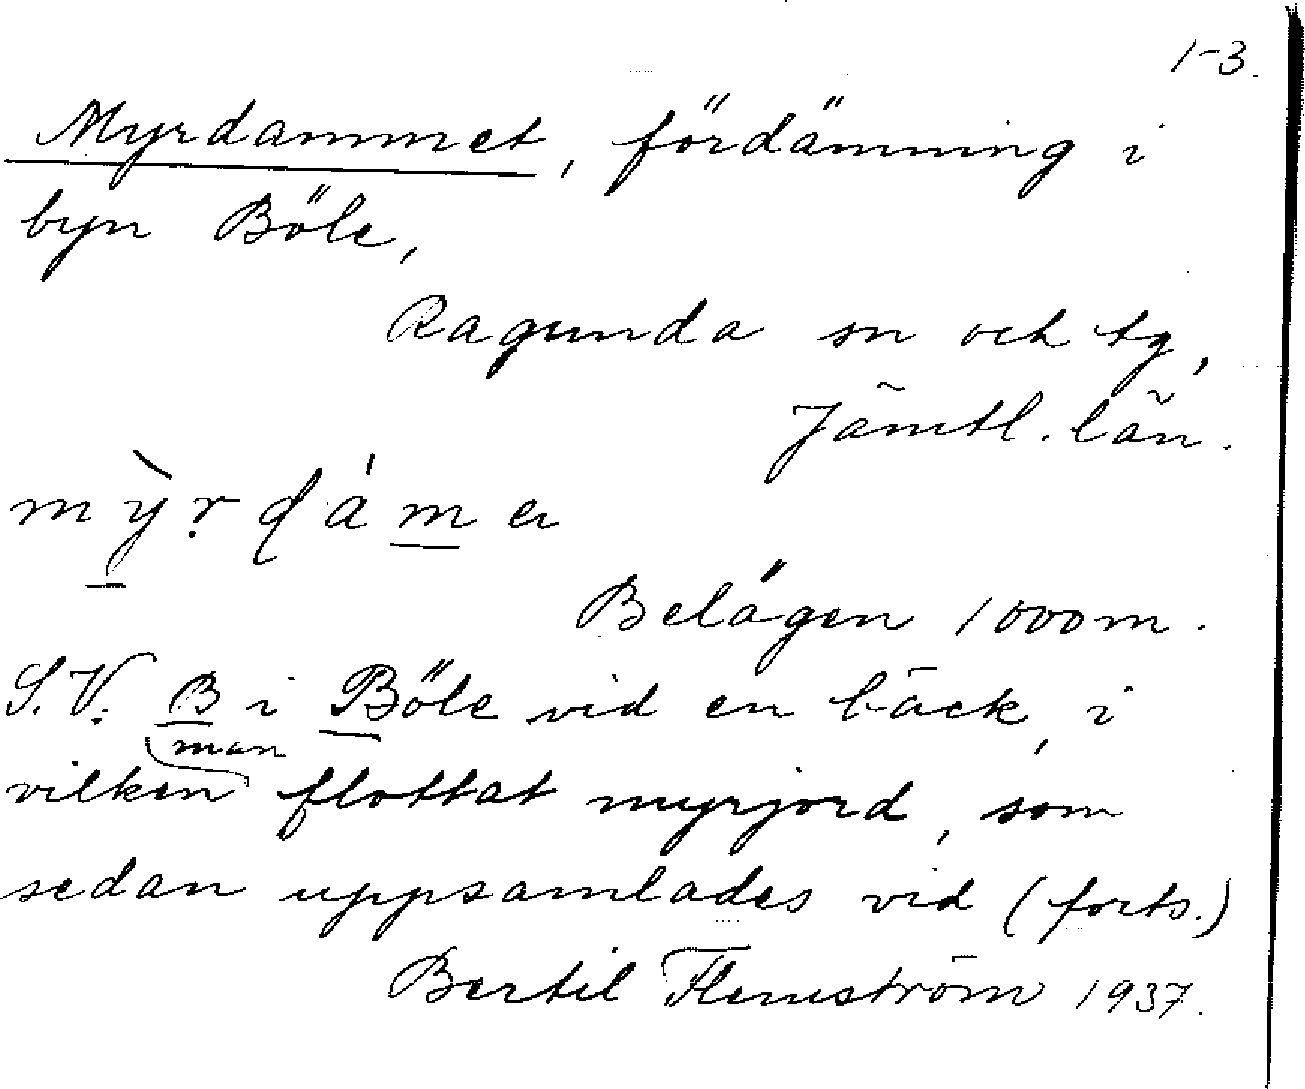 1-3.
Myrdammet, fördämning i
byn Böle,
Ragunda sn och tg,
Jämtl. län.
Belägen 1000 m.
S.V. B i Böle vid en bäck, i
man
vilken flottat myrjord, som
sedan uppsamlades vid (forts.)
Bertil Flemström 1937.